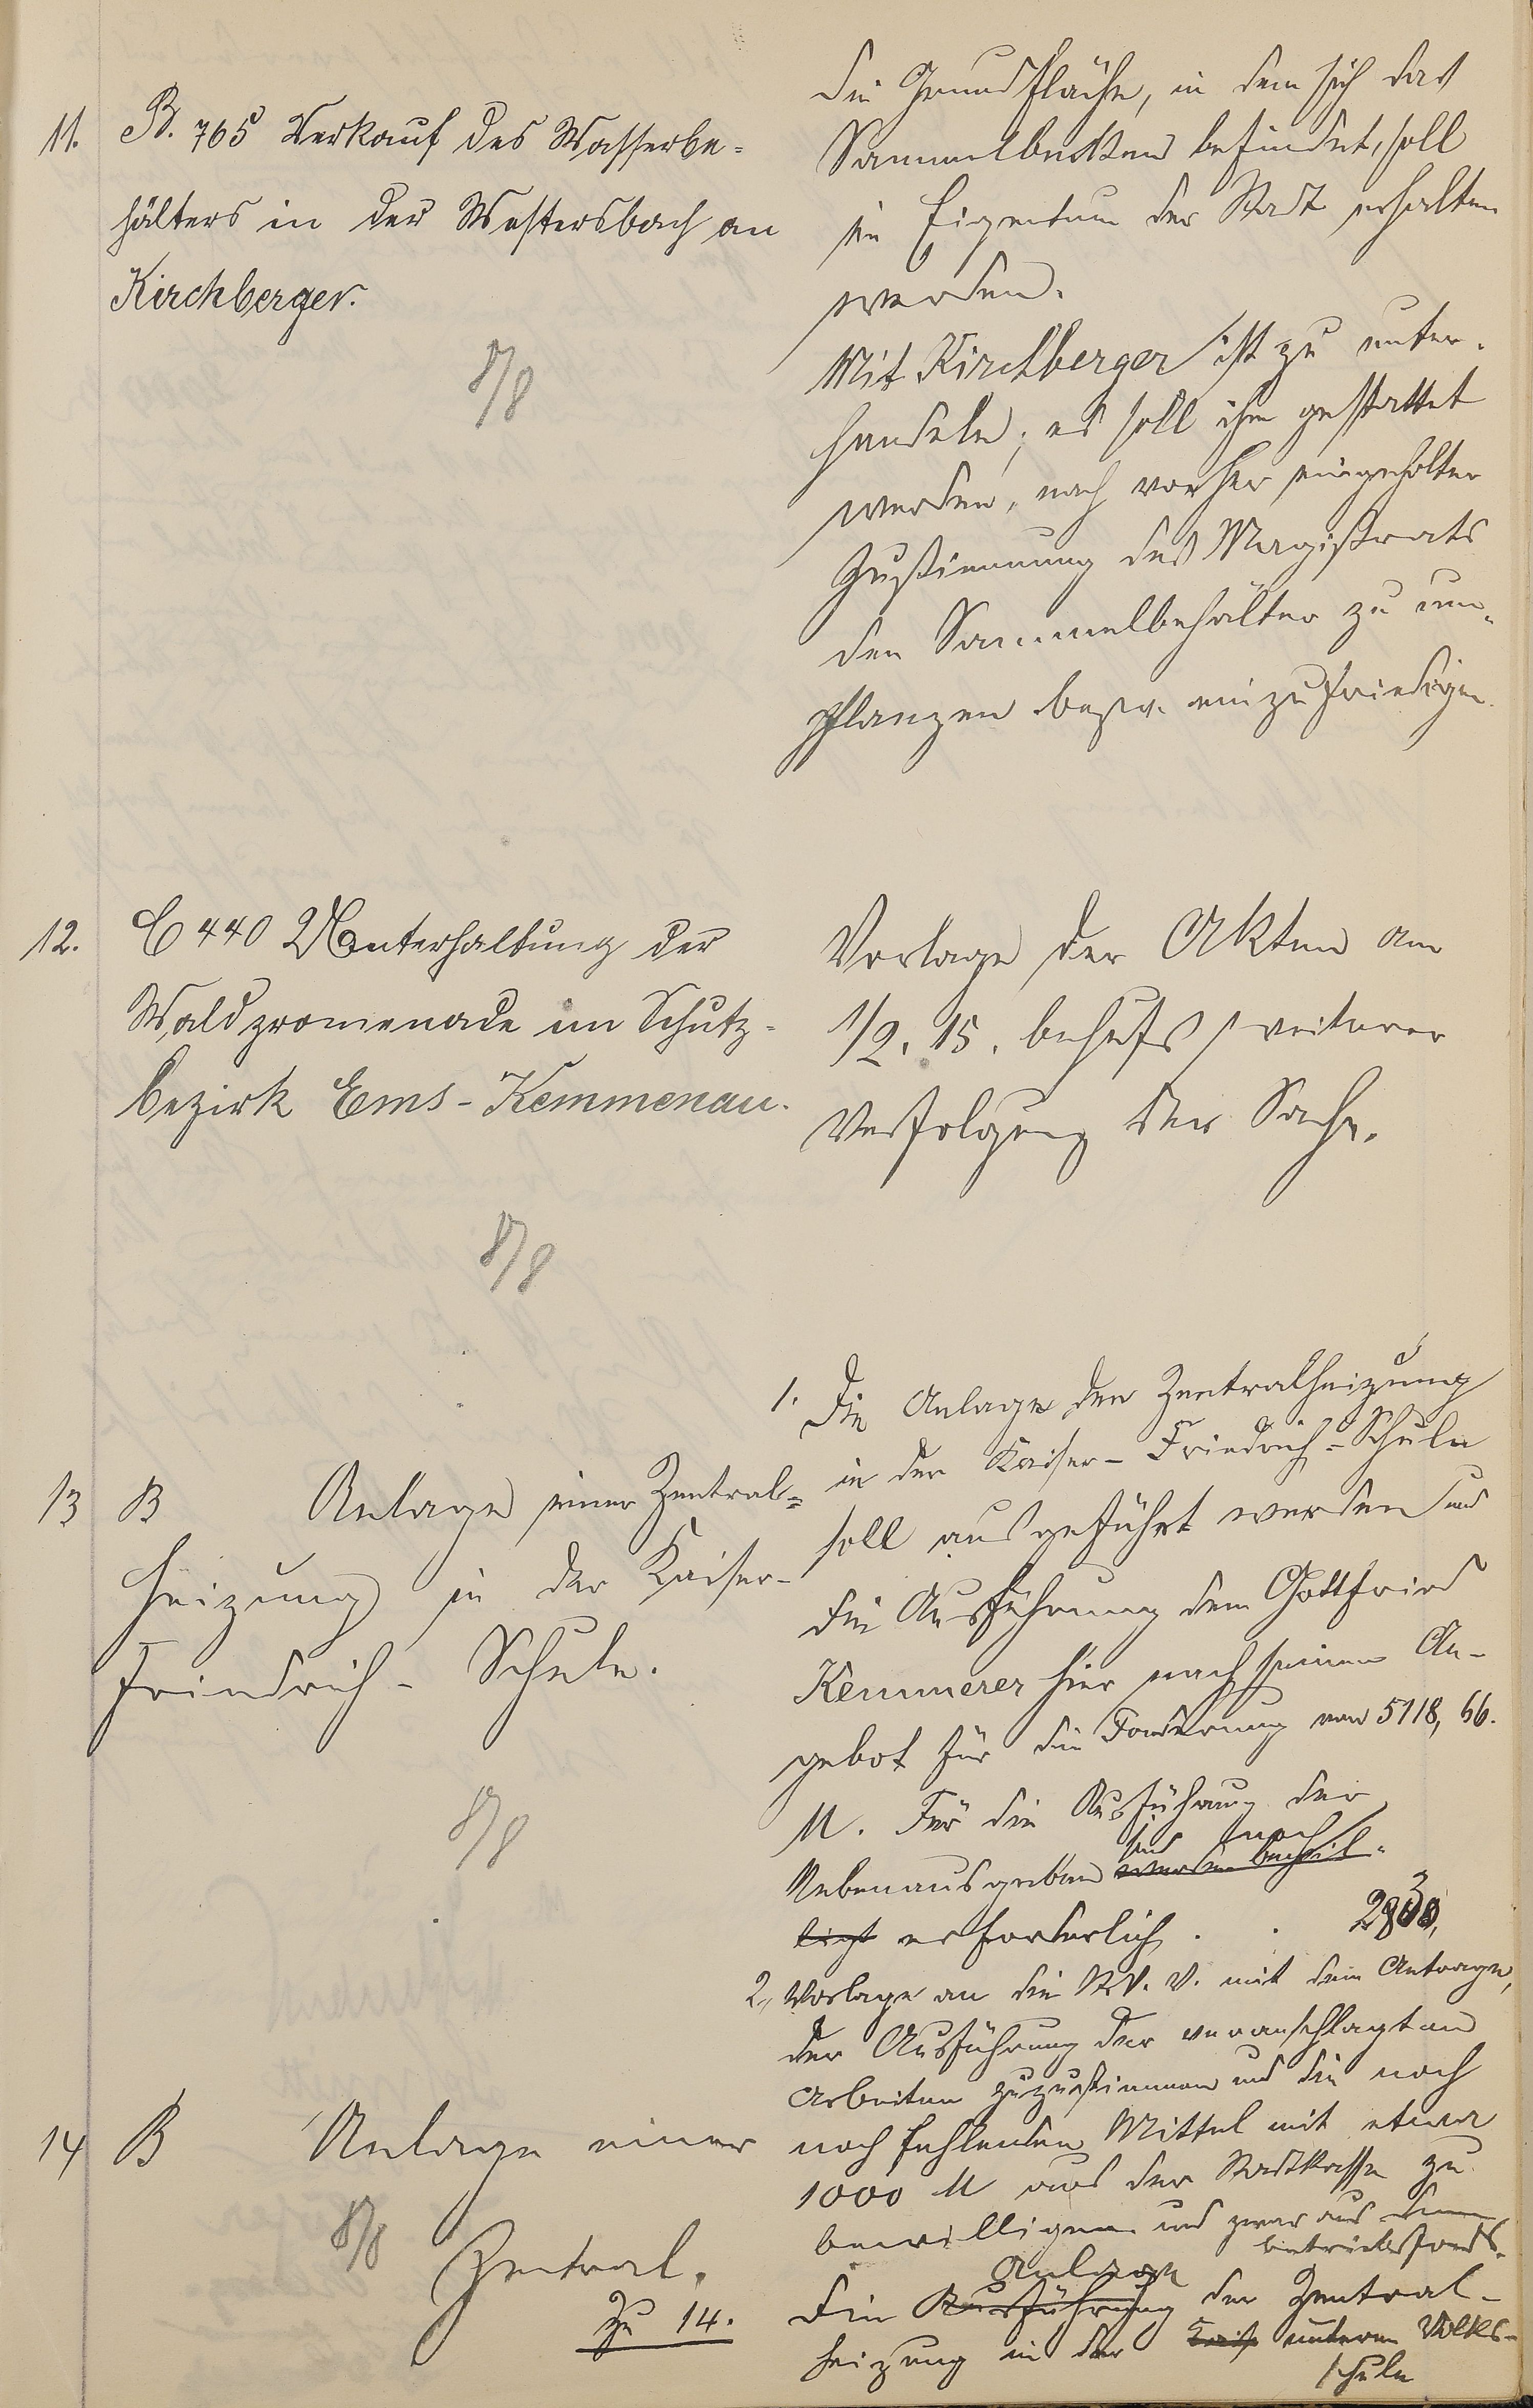 11.
B. 765 Verkauf des Wasserbe-
hälters in der Westersbach an
Kirchberger.
8/8
Die Grundfläche, in dem sich das
Sammelbecken befindet, soll
im Eigentum der Stadt erhalten
werden.
Mit Kirchberger ist zu unter-
handeln; es soll ihm gestattet
werden, nach vorher eingeholter
Zustimmung des Magistrats
den Sammelbehälter zu um-
pflanzen bezw. einzufriedigen.
12.
C 440 Unterhaltung der
Waldpromenade im Schutz-
bezirk Ems-Kemmenau.
8/8
Vorlage der Akten am
1/2. 15. behufs weiterer
Verfolgung der Sache.
13
B Anlage einer Zentral-
heizung in der Kaiser-
Friedrich-Schule.
8/8
1. Die Anlage der Zentralheizung
in der Kaiser-Friedrich-Schule
soll ausgeführt werden und
die Ausführung dem Gottfried
Kemmerer hier nach seinem An-
gebot für die Forderung von 5118,66.
M. Für die Ausführung der
sind noch
Nebenausgaben
erforderlich . .
2., Vorlage an die St. V. V. mit dem Antrage,
der Ausführung der veranschlagten
Arbeiten zuzustimmen und die noch
noch fehlenden Mittel mit etwa
1000 M aus der Stadtkasse zu
bewilligen und zwar aus dem
betriebsfonds.
14
B Anlage einer
8/8
Zentral.
Zu 14.
Anlage
Die Ausführung der Zentral-
heizung in der Kais unteren Volks-
schule